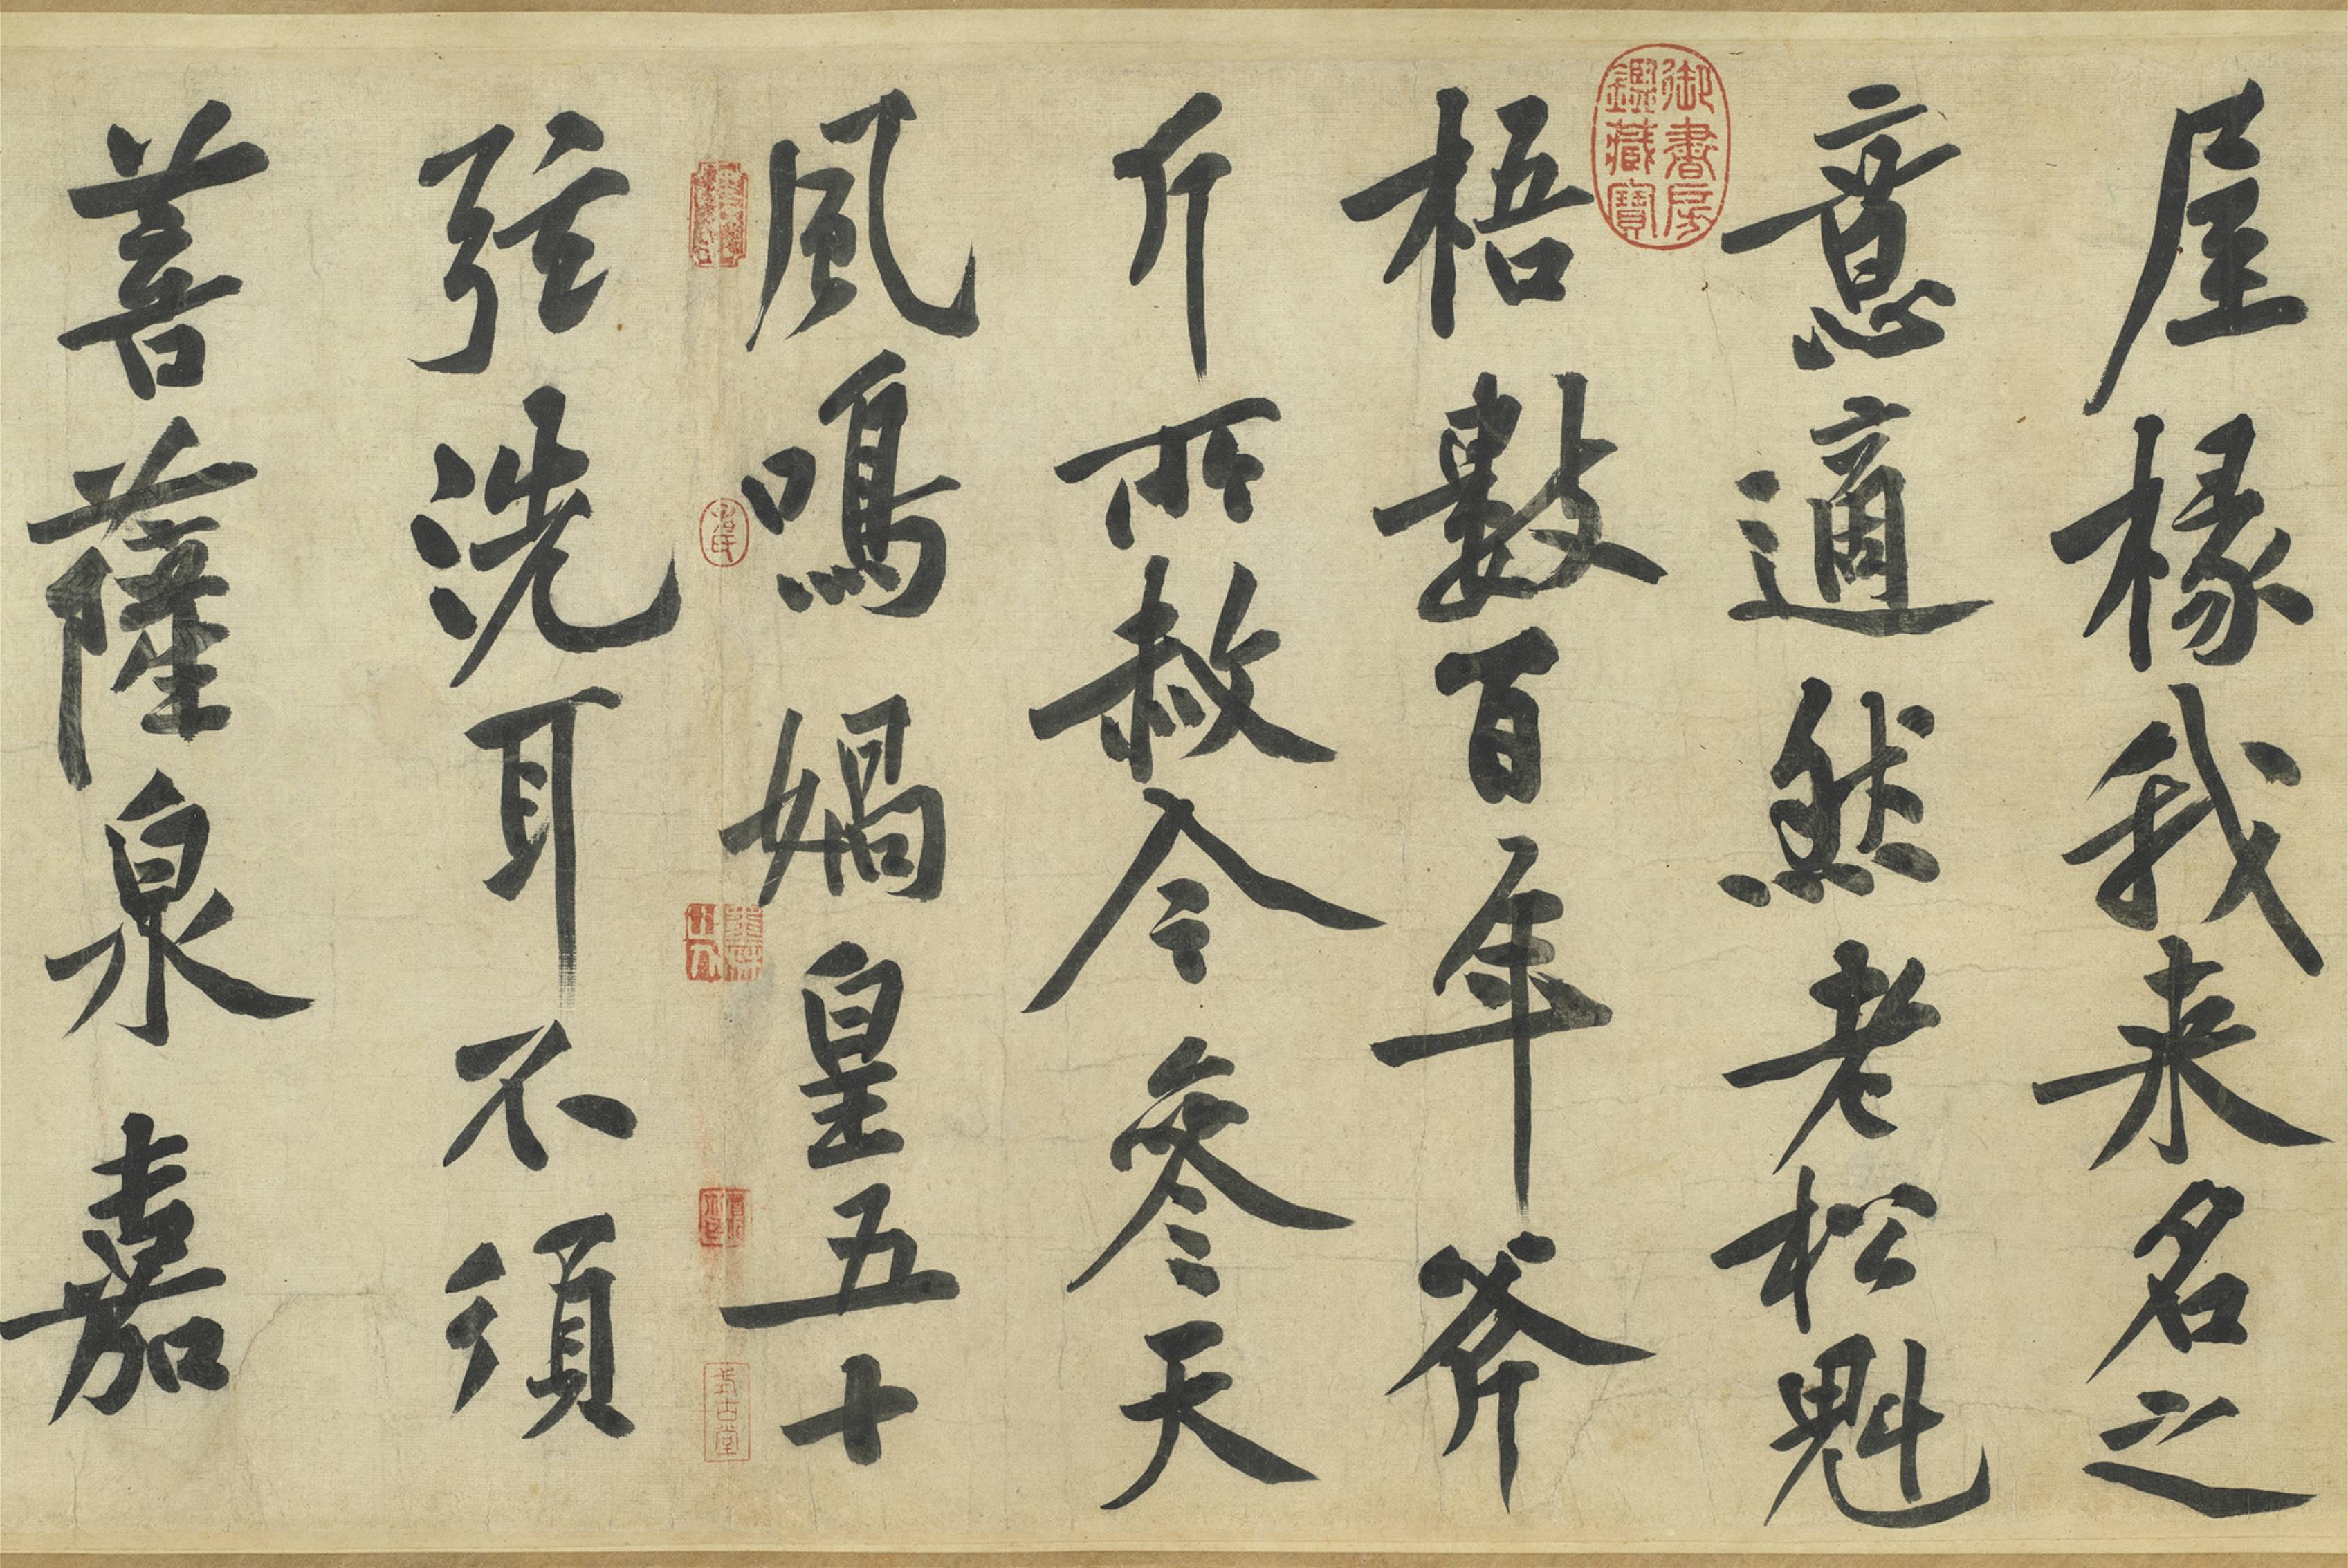 屋椽我来名之
意適然老松魁
梧數百年斧
斤所赦今參天
風鳴媧皇五十
弦洗耳不須
菩薩泉嘉
御書房鑑藏寶
式古堂